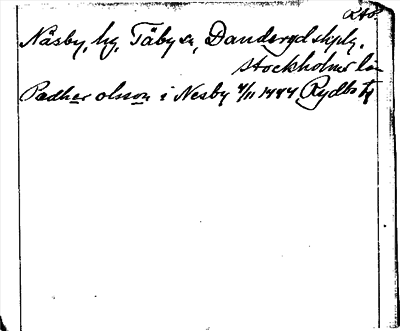 Näsby, hg, Täby sn, Danderyd skplg.
Stockholms län
Pædher olsson i Nesby 4/11 1484 Rydbo